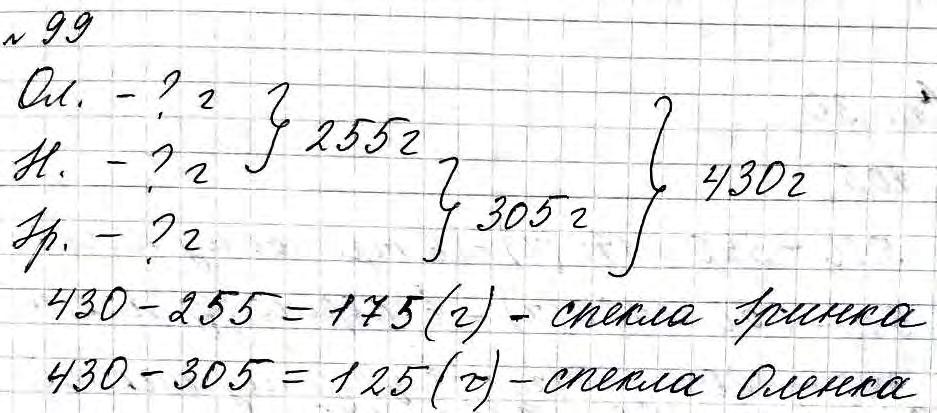 № 99
Ол. – ? г
Н. – ? г
Яр. – ? г
255 г
305 г
430 г
430 – 255 = 175 (г) – спекла Яринка
430 – 305 = 125 (г) – спекла Оленка